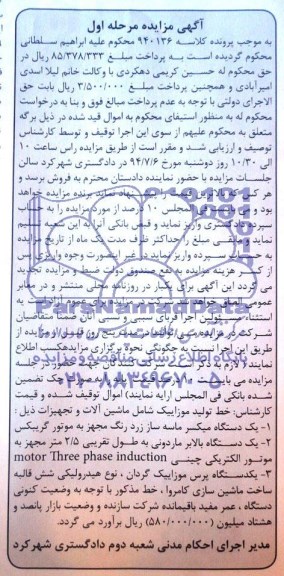 آگهی مزایده مرحله اول
به موجب پرونده کلاسه ۹۴۰۱۳۶ محکوم علیه ابراهیم سلطانی
محکوم گردیده است به پرداخت مبلغ ۸۵/۳۷۸/۳۳۳ ریال در
حق محکوم له حسین کریمی دهکردی با وکالت خانم لیلا اسدی
امیرآبادی و همچنین پرداخت مبلغ ۳/۵۰۰/۰۰۰ ریال بابت حق
الاجرای دولتی با توجه به عدم پرداخت مبالغ فوق و بنا به درخواست
محکوم له به منظور استیفای محکوم به اموال قید شده در ذیل برگه
متعلق به محکوم علیهم از سوی این اجرا توقیف و توسط کارشناس
توصیف و ارزیابی شد و مقرر است از طریق مزایده راس ساعت ۱۰
الی ۱۰/۳۰ روز دوشنبه مورخ ۹۴/۷/۶ در دادگستری شهرکرد سالن
جلسات مزایده با حضور نماینده دادستان محترم به فروش برسد و
هر کس که بالاترین قیمت را پیشنهاد نماید برنده مزایده خواهد
بود و فی المجلس ۱۰ درصد از مورد مزایده را به حساب
سپرده دادگستری واریز نماید و فیش بانکی آنرا به این اجرا تسلیم
نماید و مابقی مبلغ را حداکثر ظرف مدت یک ماه از تاریخ مزایده
به حساب سپرده واریز نماید در غیر اینصورت وجوه واریزی پس
از کسر هزینه مزایده به نفع صندوق دولت ضبط و مزایده تجدید
می گردد این آگهی برای یکبار در روزنامه محلی منتشر و در معابر
عمومی الصاق خواهد شد شرکت در مزایده برای عموم آزاد است به
استثناء مسئولین اجرا و اقربای نسبی و سببی آنان ضمنا متقاضیان
شرکت در مزایده می توانند در مدت پنج روز قبل از مزایده از
طریق این اجرا نسبت به چگونگی نحوه برگزاری مزایده کسب اطلاع
نمایند لازم به ذکر است شرکت کنندگان جهت حضور در جلسه
مزایده می بایست
شده بانکی فی المجلس ارایه نمایند) اموال توقیف شده و قیمت
کارشناس: خط تولید موزاییک شامل ماشین آلات و تجهیزات ذیل :
۱- یک دستگاه میکسر ماسه ساز زرد رنگ مجهز به موتور گیربکس
۲- یک دستگاه بالابر ماردونی به طول تقریبی ۲/۵ متر مجهز به
موتور الکتریکی چینی motor Three phase induction
۳- یکدستگاه پرس موزاییک گردان ، نوع هیدرولیکی شش قالبه
ساخت ماشین سازی کامروا ، خط مذکور با توجه به وضعیت کنونی
دستگاه ، عمر مفید باقیمانده شرکت سازنده و وضعیت بازار پانصد و
هشتاد میلیون (۵۸۰/۰۰۰/۰۰۰) ریال برآورد می گردد.
مدیر اجرای احکام مدنی شعبه دوم دادگستری شهرکرد
ParsNamadData
پایگاه اطلاع رسانی مناقصه و مزایده
۰۲۱-۸۸۳۴۹۶۷۰-۵